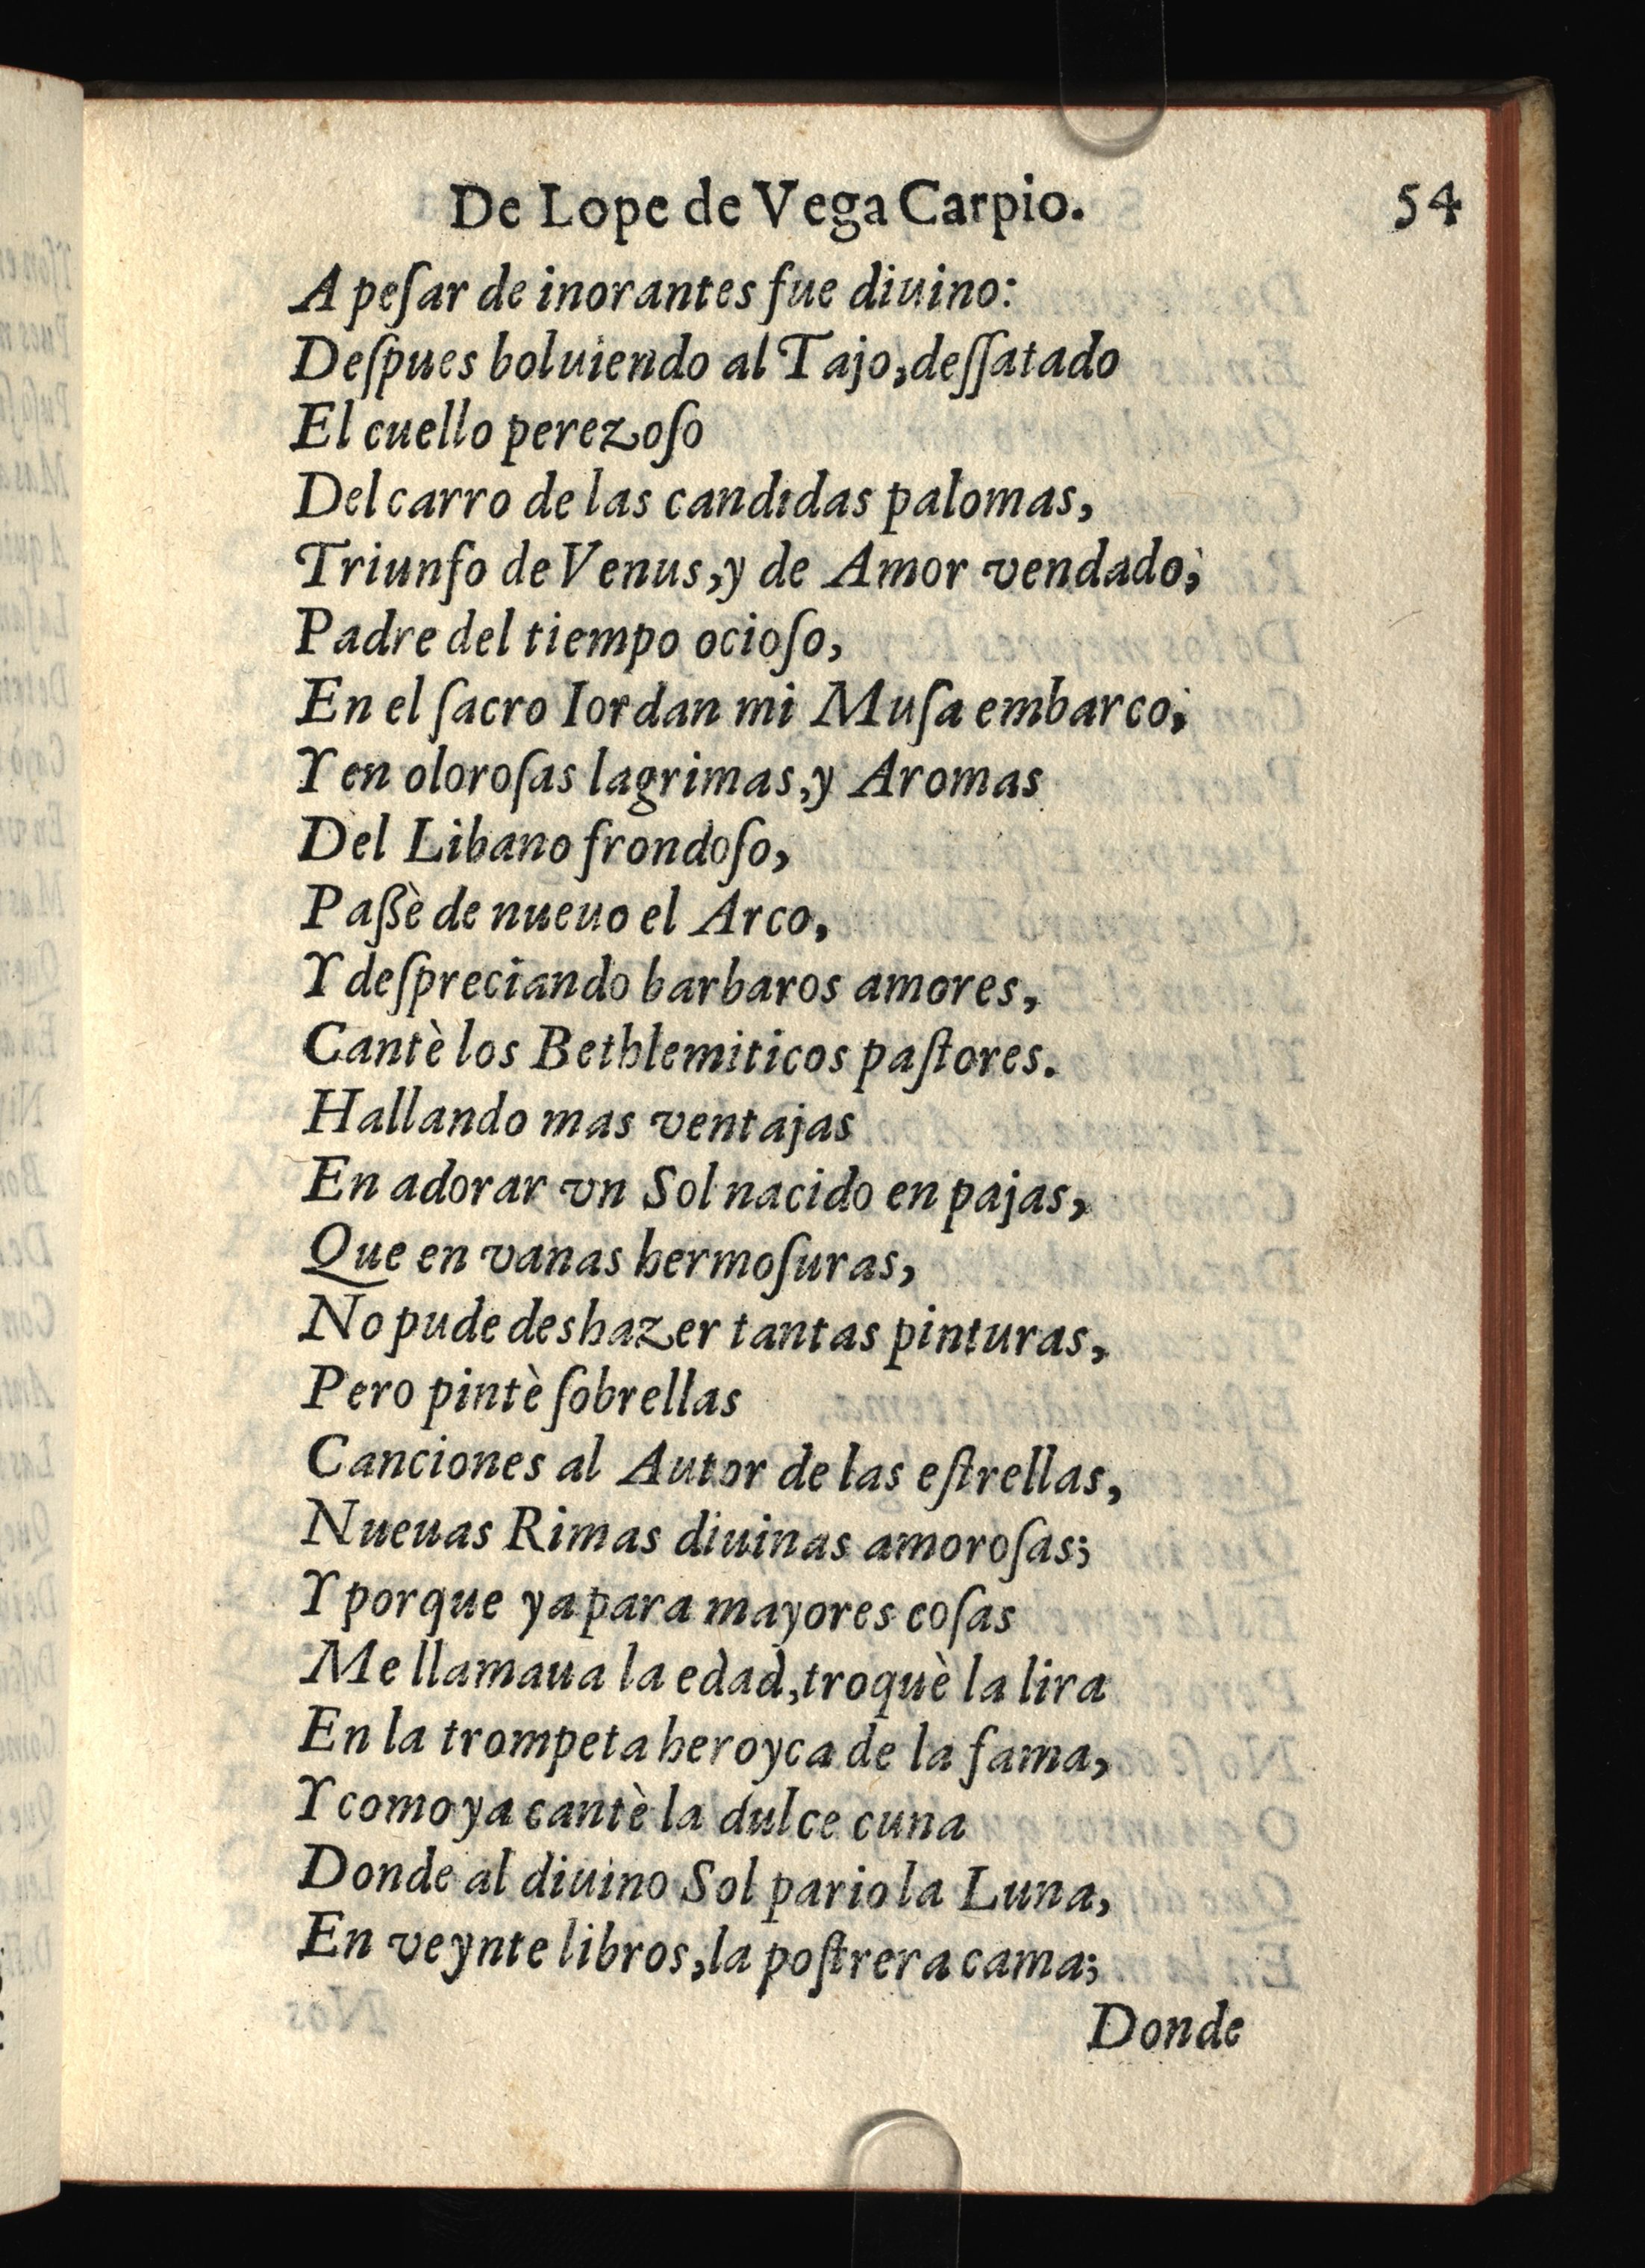 De Lope de Vega Carpio. 54
A peſar de inorantes fue diuino:
Deſpues boluiendo al Tajo, deſſatado
El cuello perezoſo
Del carro de las candidas palomas,
Triunfo de Venus, y de Amor vendado;
Padre del tiempo ocioſo,
En el ſacro Iordan mi Muſa embarco;
Y en oloroſas lagrimas, y Aromas
Del Libano frondoſo,
Paßè de nueuo el Arco,
Y deſpreciando barbaros amores,
Cantè los Bethlemiticos paſtores.
Hallando mas ventajas
En adorar vn Sol nacido en pajas,
Que en vanas hermoſuras,
No pude deshazer tantas pinturas,
Pero pintè ſobrellas
Canciones al Autor de las eſtrellas,
Nueuas Rimas diuinas amoroſas;
Y porque ya para mayores coſas
Me llamaua la edad, troquè la lira
En la trompeta heroyca de la fama,
Y como ya cantè la dulce cuna
Donde al diuino Sol pario la Luna,
En veynte libros, la poſtrera cama;
Donde